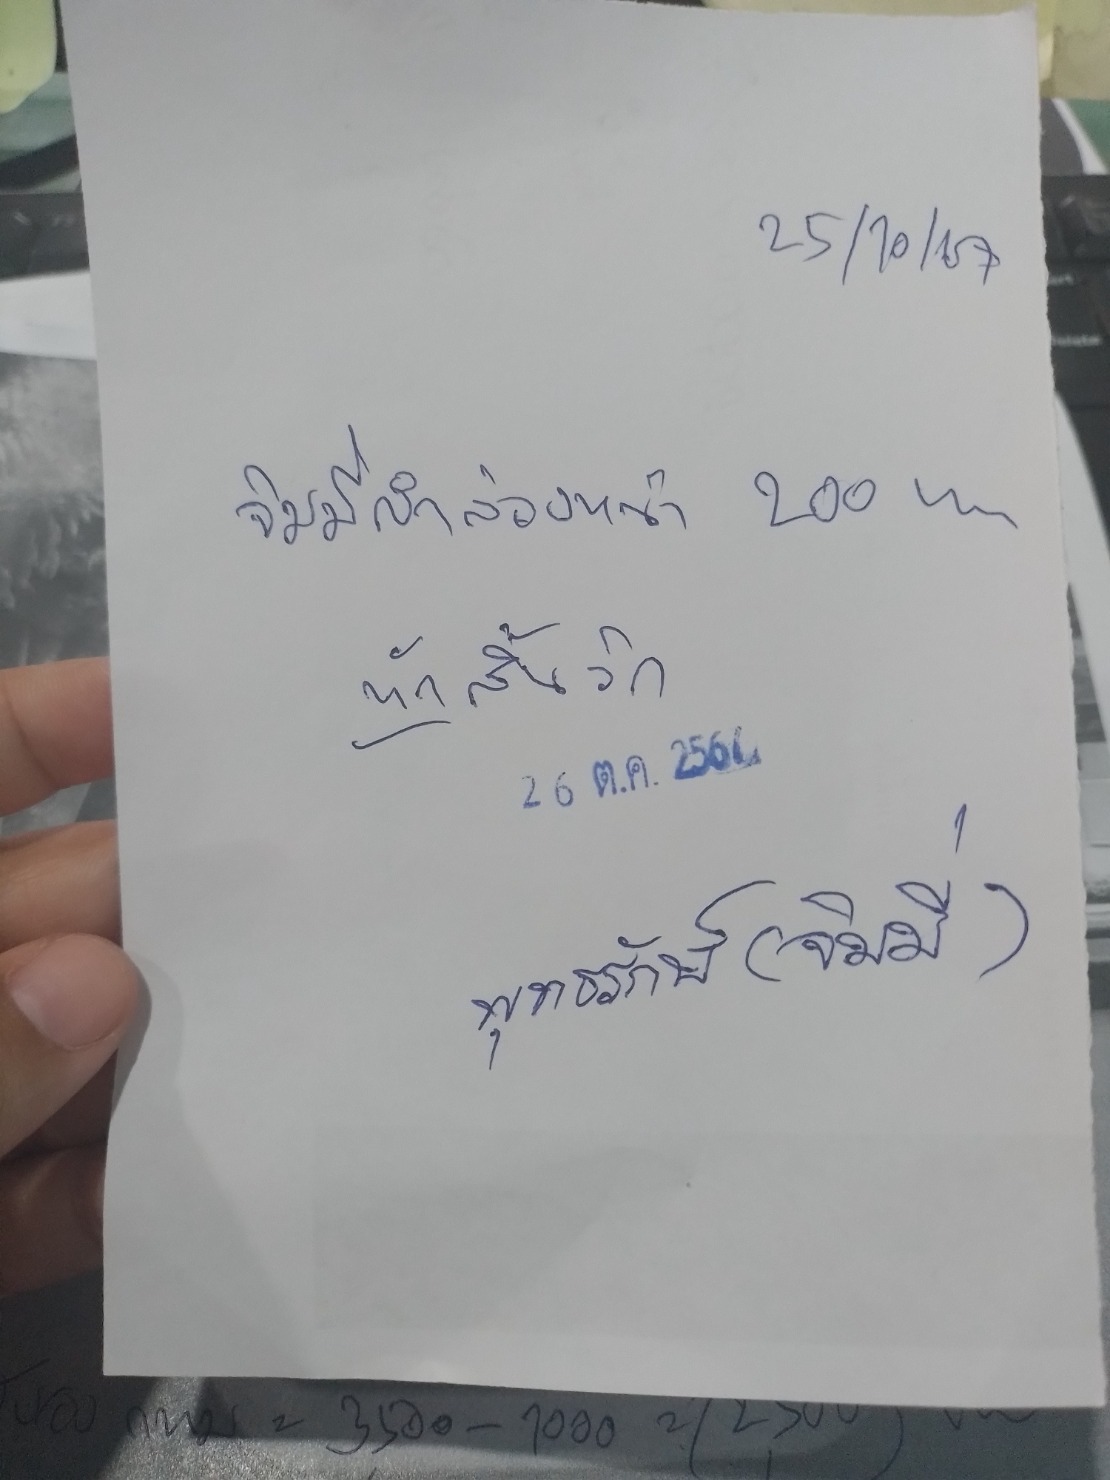 25/10/67
จิมมี่ล้ำล่วงหน้า 200 บาท
หักสิ้นวีก
26 ต.ค. 256
พุทธรักษ์ (จิมมี่)
= 3500 - 1000 = (2500)